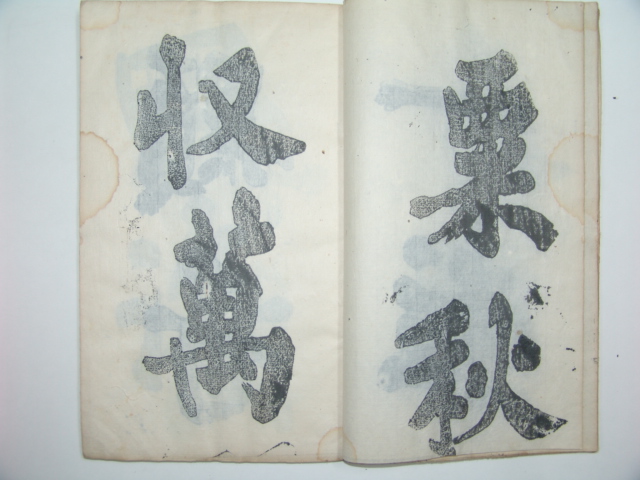 粟秋
收萬